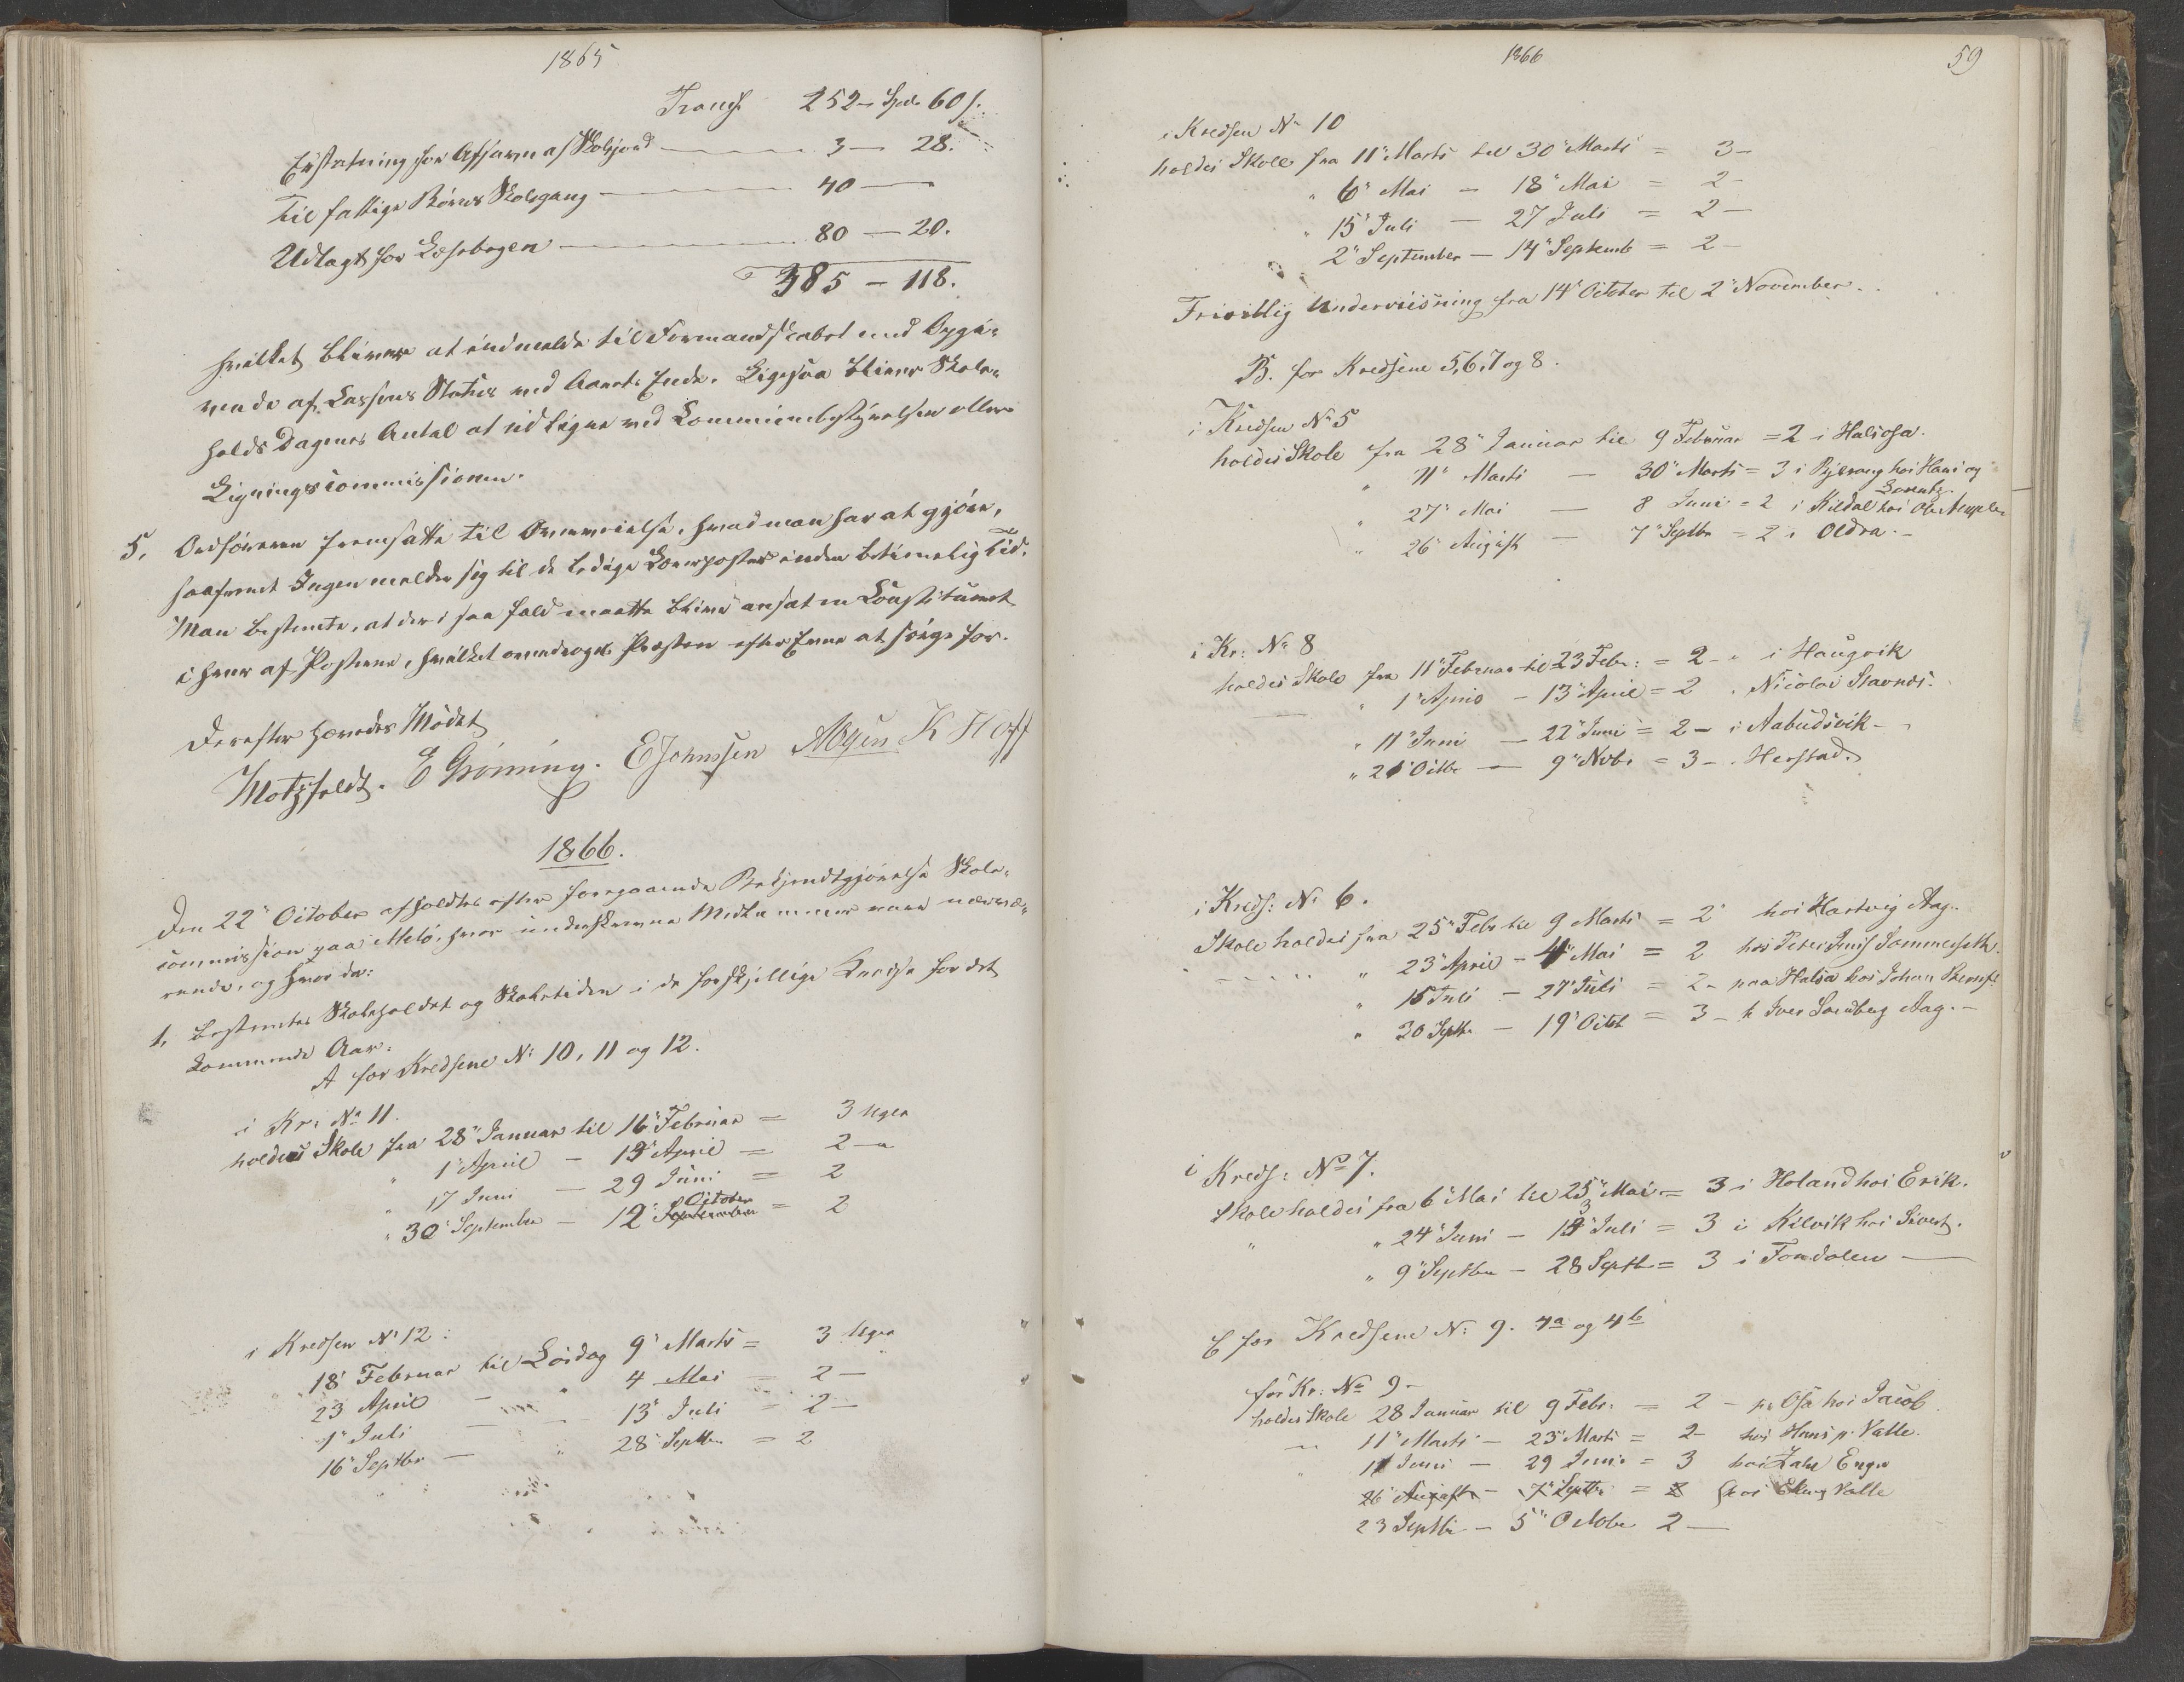 1865
Transp. 252 – Spd. 60 s.
Erstatning for Afsavn af Skolejord 3 — 28.
Til fattige Børns Skolegang 40 —
Udlagt for Læsebogen 80 — 20.
385 – 118.
hvilket bliver at indmelde til Formandskabet med Opgi-
vende af Cassens Status ved Aarets Ende. Ligesaa bliver Skole-
holds Dagenes Antal at udligne ved Communebestyrelsen eller
Ligningscommissionen.
5. Ordføreren fremsatte til Overveielse, hvad man har at gjøre,
saafremt Ingen melder sig til de ledige Lærerposter inden betimelig Tid.
Man bestemte, at der i saa Fald maatte blive ansat en Constitueret
i hver af Posterne, hvilket overdroges Præsten efter Evne at sørge for.
Derefter hævedes Mødet
Motzfeldt. E Grøning. E Johnsen K Hoff
1866.
Den 22" October afholdtes efter foregaaende Bekjendtgjørelse Skole-
commission paa Melø, hvor underskrevne Medlemmer vare nærvæ-
rende, og hvor der:
1, bestemtes Skoleholdet og Skoletiden i de forskjellige Kredse for det
kommende Aar:
A for Kredsene No 10, 11 og 12.
i Kr: No 11.
holdes Skole fra 28" Januar til 16" Februar = 3 Uger
" 1" April – 13" April = 2 –"
" 17 Juni – 29 Juni = 2
" 30" September – 12" September October = 2
i Kredsen No 12:
" 18" Februar til Løidag 9" Marts = 3 Uger
23 April – " 4 Mai = 2 –
1" Juli — 13" Juli = 2 –
16" Septbr — " 28" Septbr = 2
1866
59
i Kredsen No 10
holdes Skole fra 11" Marts til 30" Marts = 3 –
" 6" Mai – 18" Mai = 2 –
" 15" Juli — 27 Juli = 2 –
2" September – 14" Septemb = 2 –
Frivillig Underviisning fra 14" October til 2" November.
B. for Kredsene 5, 6, 7 og 8.
i Kredsen No 5
holdes Skole fra 28" Januar til 9 Februar = 2 i Halsosa.
" 11" Marts — 30" Marts = 3 i hos Hans og
Lorentz.
" 27" Mai — 8 Juni = 2 i Kildal hos Ole
" 26" August — 7" Septbr = 2 i Oldra. –
i Kr: No 8
holdes Skole fra 11" Februar til 23 Febr: = 2 – " i Haugvik
" 1" April – 13" April = 2 . Nicolai Stavnes.
" 11" Juni — 22" Juni = 2 – i Aabudsvik –
" 21" Octbr — 9" Nvbr = 3 – . Herstad.
i Kreds: No 6.
Skole holdes fra 25" Febr til 9 Marts = 2" hos Hartvig Aag..
" 23" April – 4" Mai = 2 hos Peter Jenss Sommerseth.
" 15" Juli – 27" Juli = 2 – paa Halsa hos Johan
" 30 Septbr – 19" Octob = 3 – h Iver Aag. –
i Kreds: No 7.
Skole holdes fra 6" Mai til 25" Mai = 3 i Holand hos Erik.
" " 24" Juni – 13" Juli = 3 i Kilvik hos Sivert.
" 9" Septbr – 28 Septb = 3 i Fondalen —
C for Kredsene No: 9. 4a og 4b
for Kr: No 9 –
holdes Skole 28 Januar til 9 Febr: = 2 – pr Osa hos Jacob.
" 11" Marts – 23" Marts = 2 – hos Hans p. Valle.
" 11 Juni – 29 Juni = 3 hos Enge
26" August – 7" Septbr = 2 hos Valle
23 Septbr – 5" Octobr 2 —